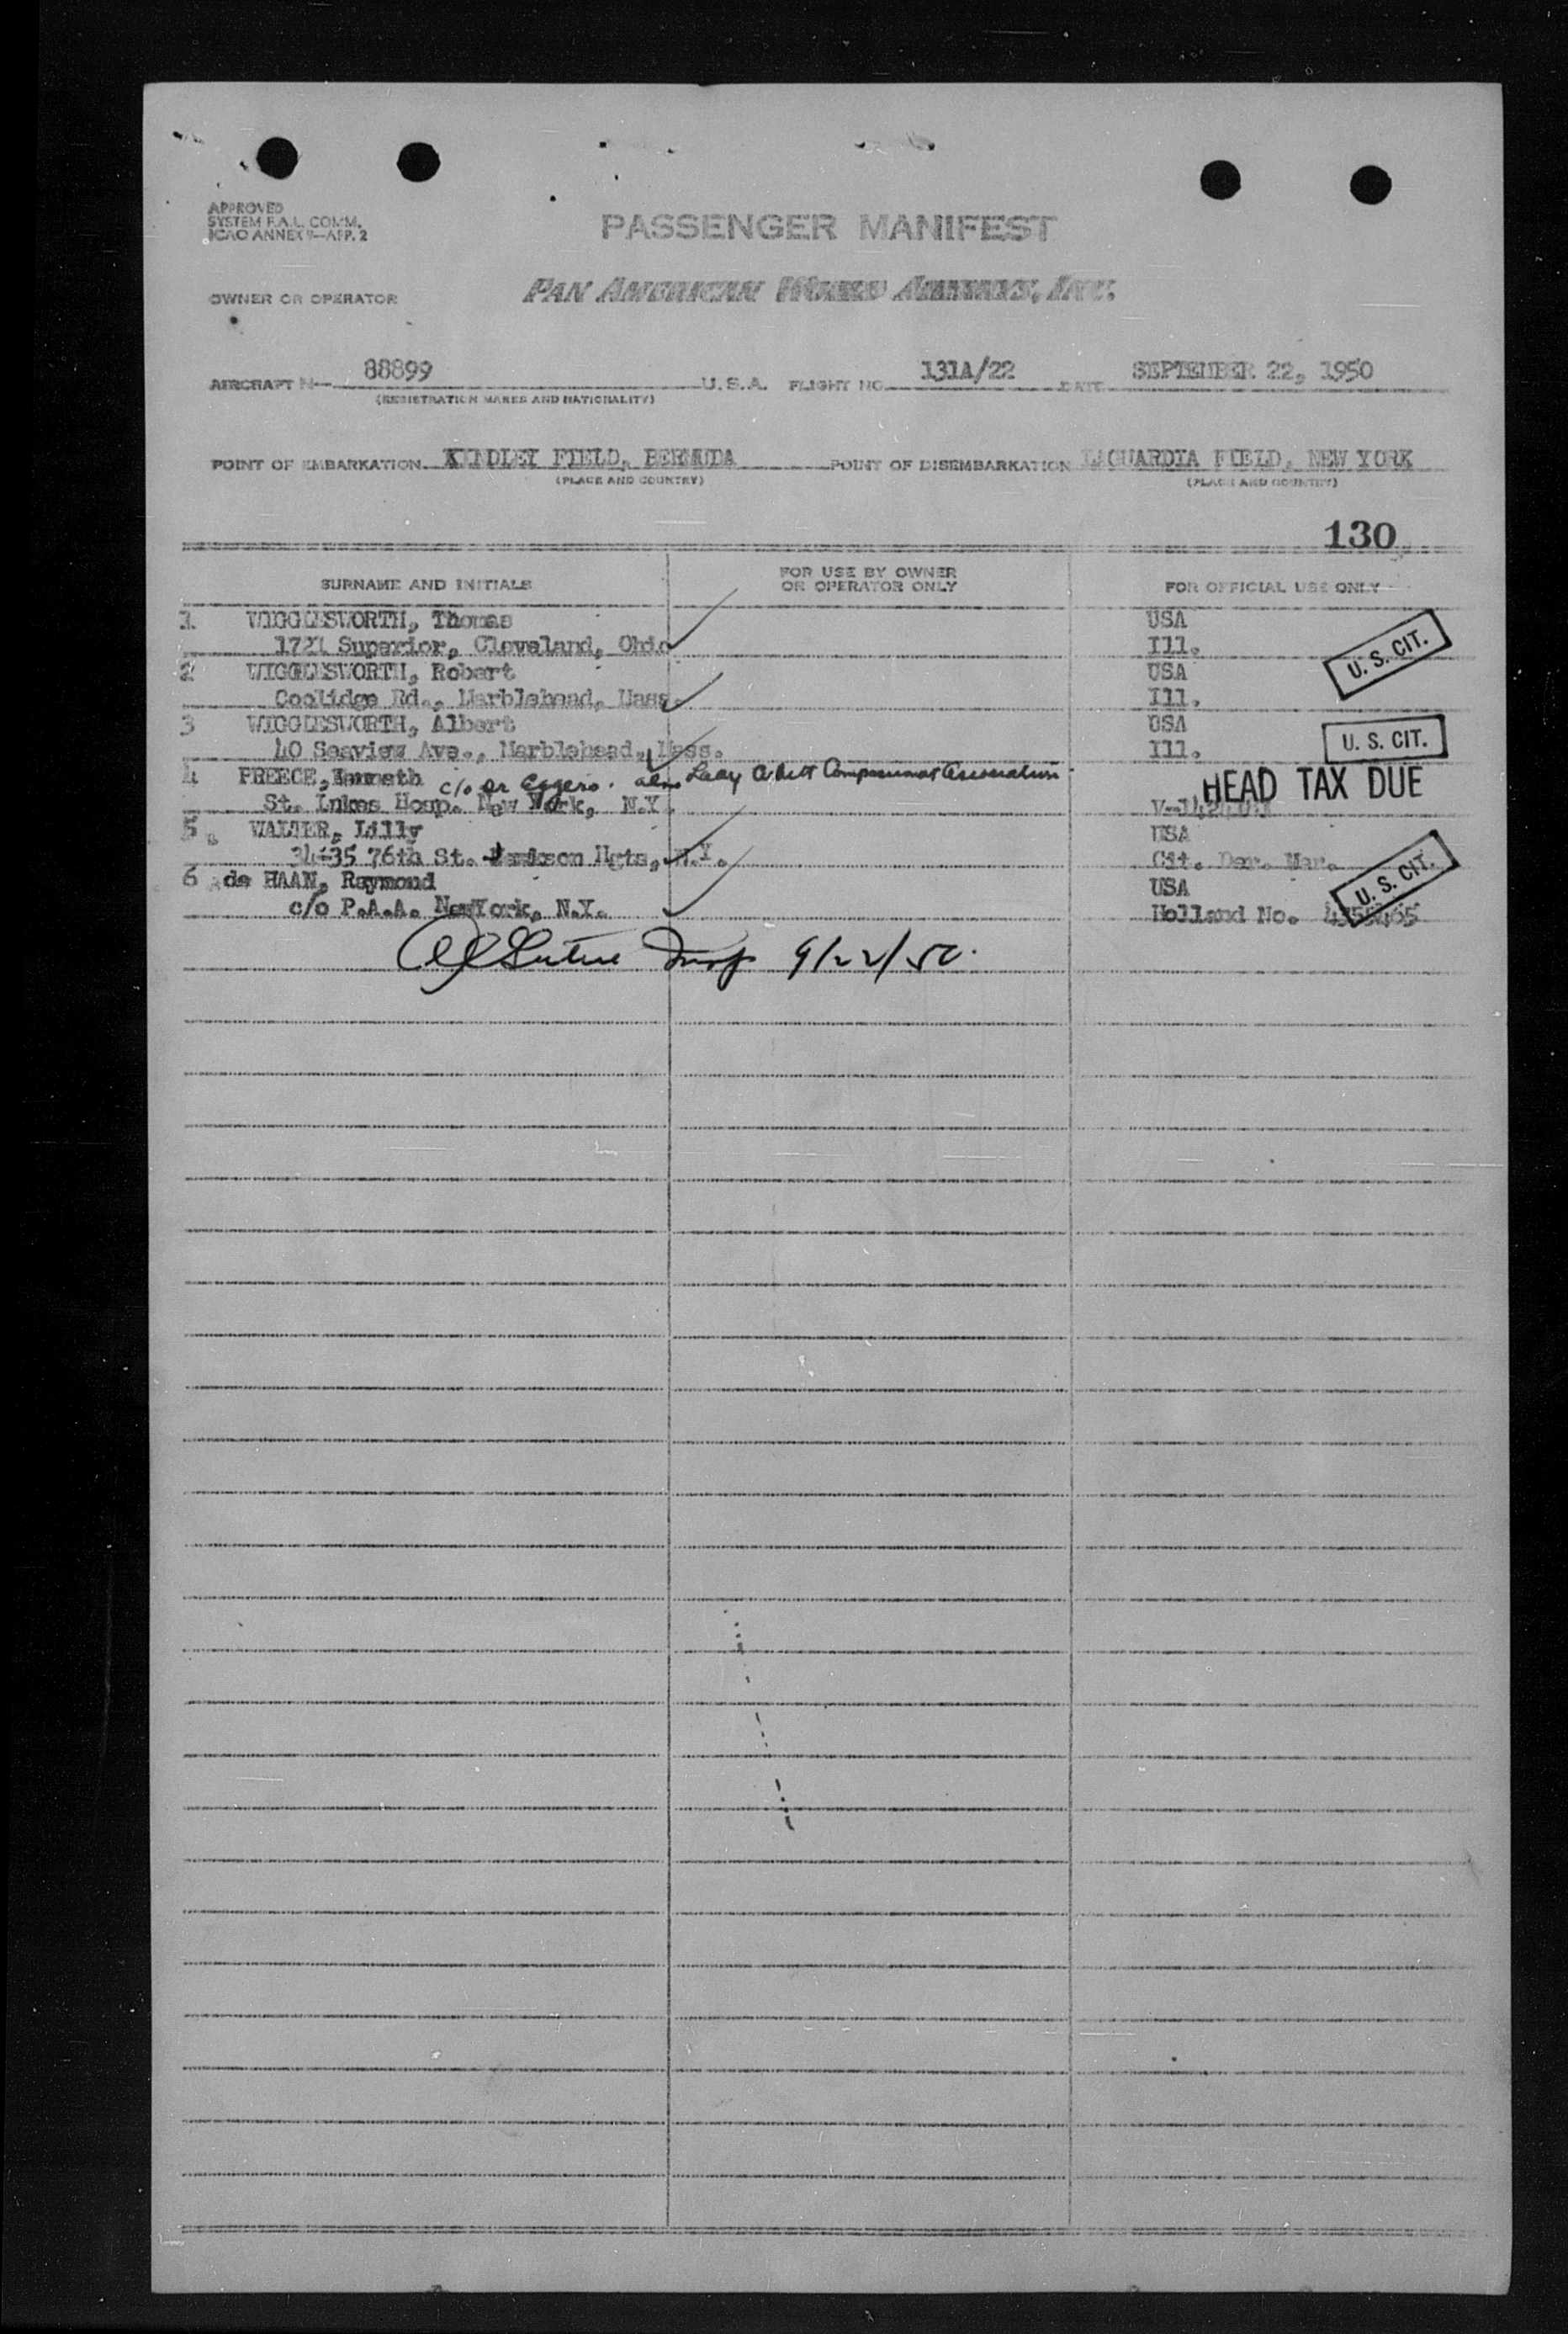 APPROVED
SYSTEM F.A.L. COMM.
ICAO ANNEX 9—APP. 2
PASSENGER MANIFEST
OWNER OR OPERATOR
PAN AMERICAN WORLD AIRWAYS, INC.
AIRCRAFT N— 88899 U.S.A. FLIGHT NO. 131A/22 DATE SEPTEMBER 22, 1950
(REGISTRATION MARKS AND NATIONALITY)
POINT OF EMBARKATION KINDLEY FIELD, BERMUDA POINT OF DISEMBARKATION LAGUARDIA FIELD, NEW YORK
(PLACE AND COUNTRY) (PLACE AND COUNTRY)
130
SURNAME AND INITIALS FOR USE BY OWNER OR OPERATOR ONLY FOR OFFICIAL USE ONLY
1 WIGGLESWORTH, Thomas USA
Superior, Cleveland, Ohio Ill. U. S. CIT.
2 WIGGLESWORTH, Robert USA
Coolidge Rd., Marblehead, Mass. Ill.
3 WIGGLESWORTH, Albert USA
40 Seaview Ave., Marblehead, Mass. Ill. U. S. CIT.
4 PREECE, Kenneth c/o Dr Eggers. also Lady Association HEAD TAX DUE
St. Lukes Hosp. New York, N.Y.
5 WALTER, Lilly USA
34-35 76th St. Jackson Hgts, N.Y. Cit. Der. Mar.
6 de HAAN, Raymond USA U. S. CIT.
c/o P.A.A. NewYork, N.Y. Holland No.
Insp 9/22/50.